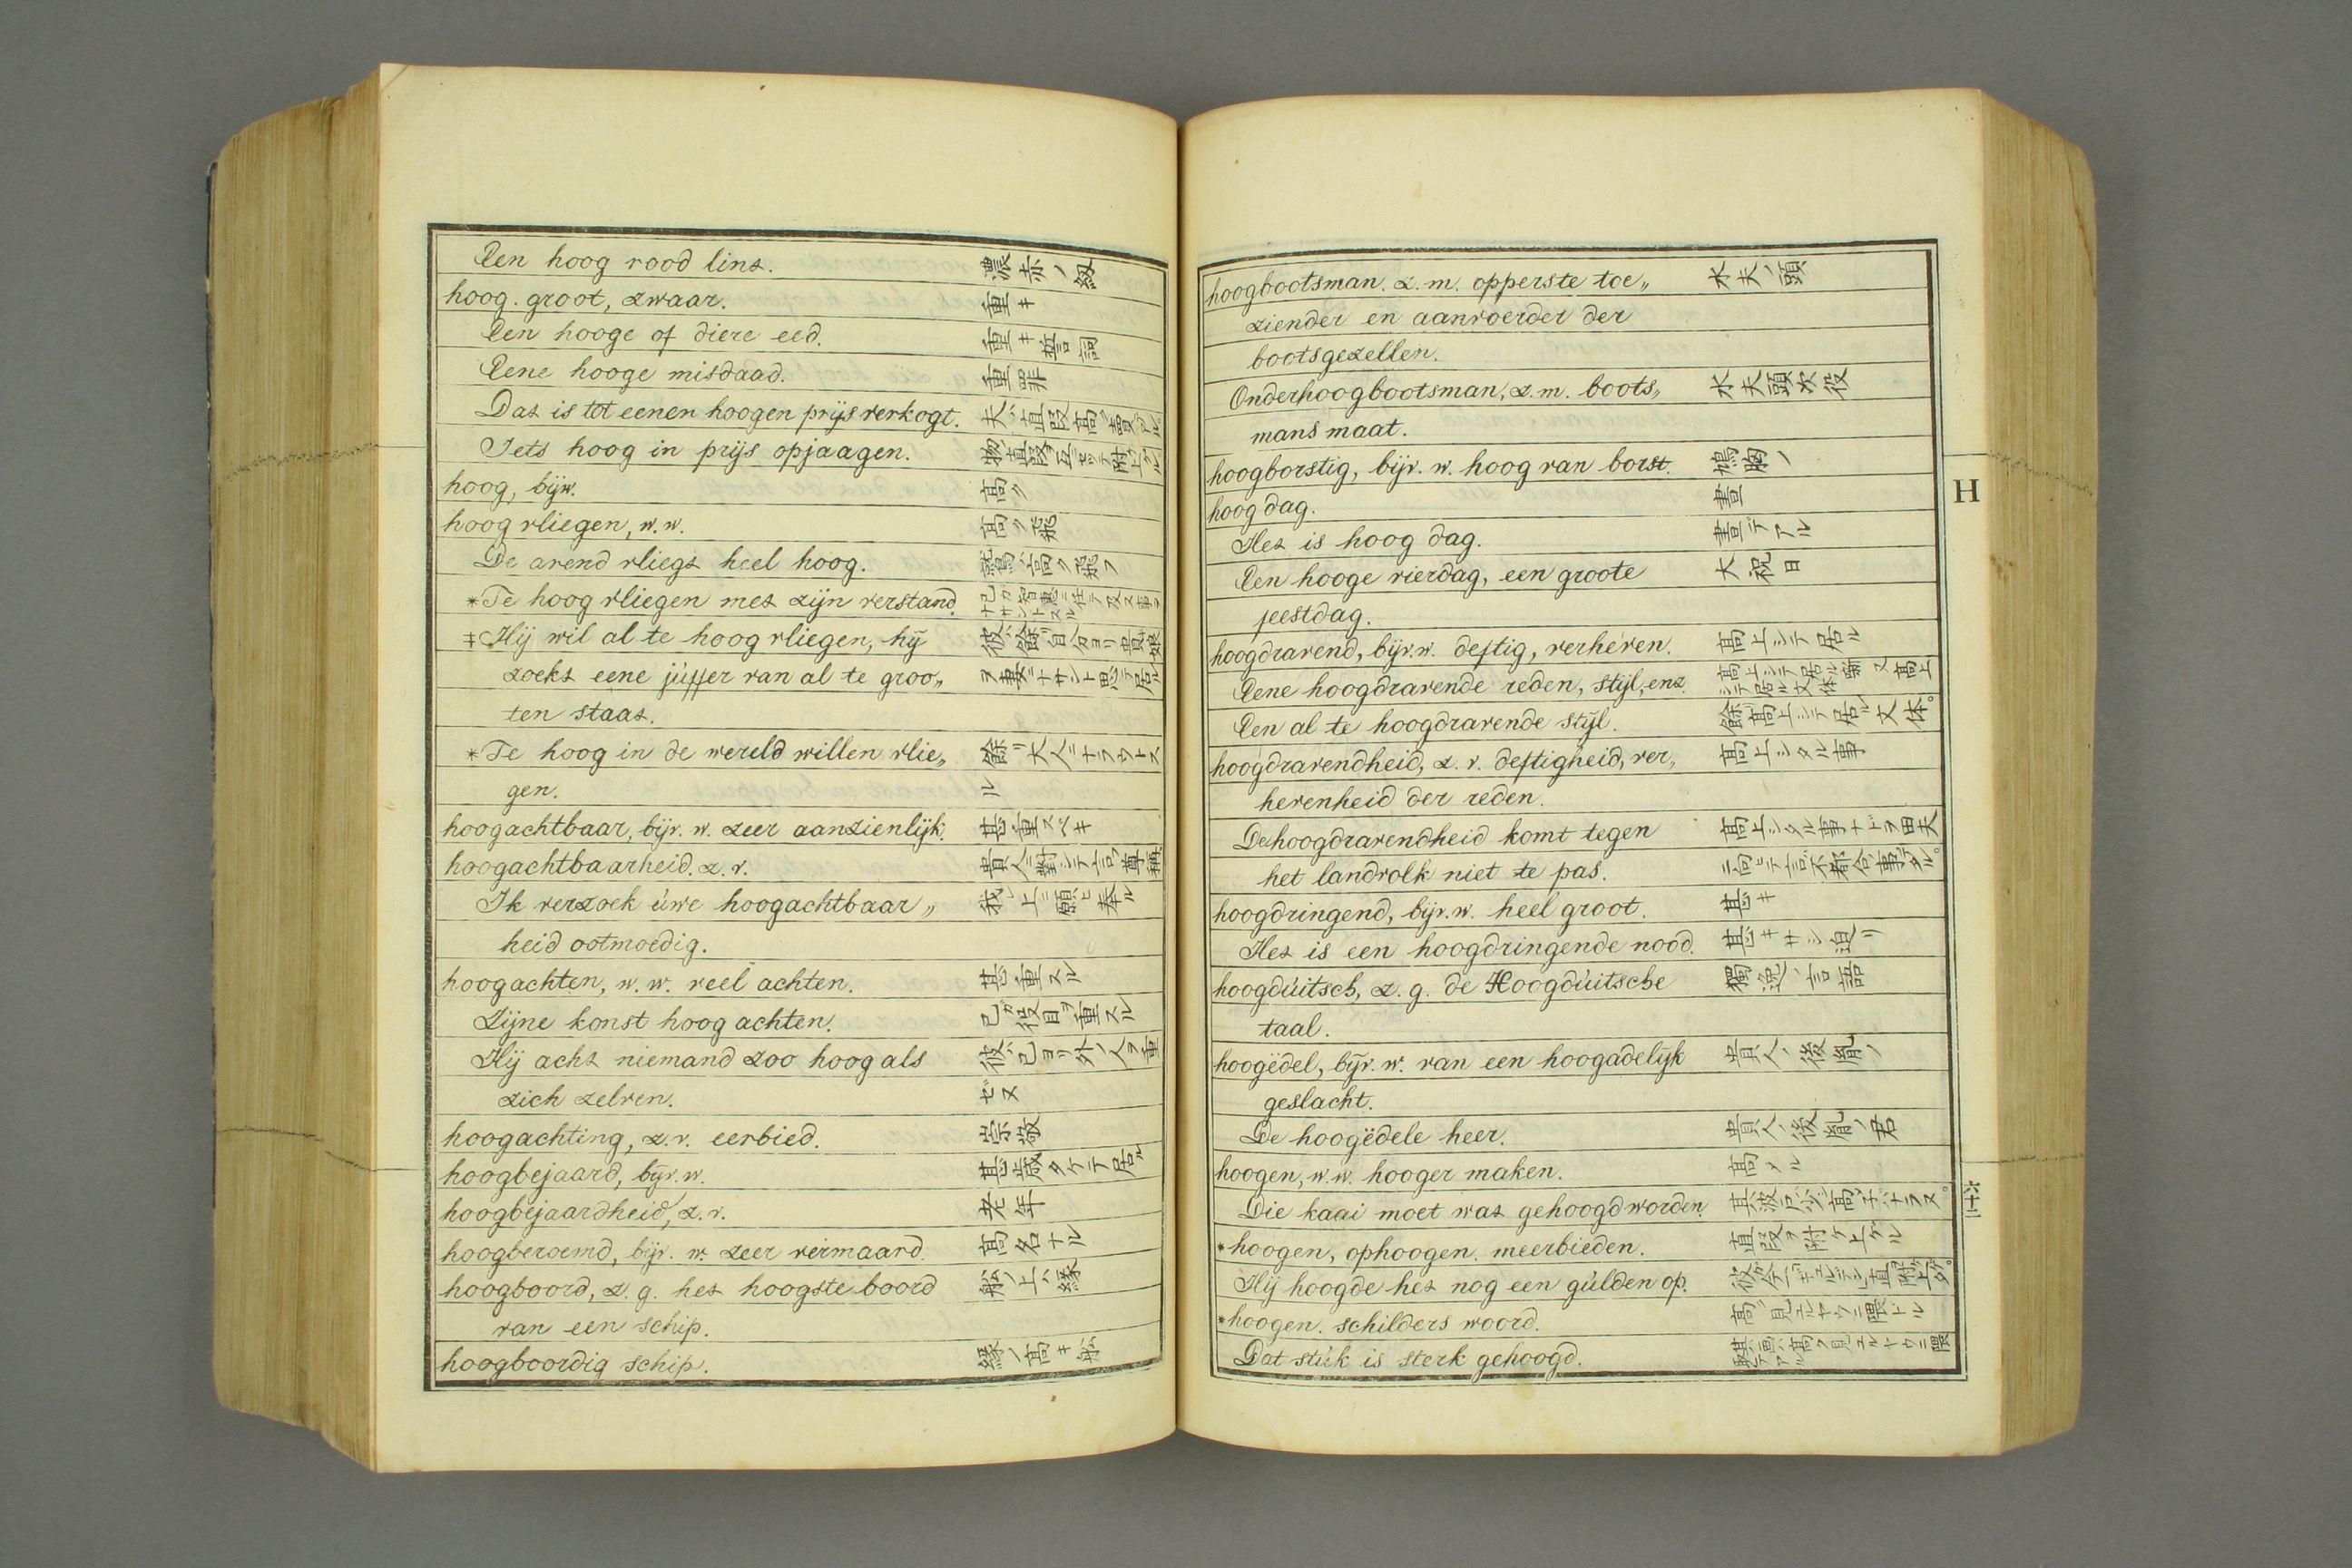 Een hoog rood lint. 濃赤ノ紐
hoog. groot, zwaar. 重キ
Een hooge of diere eed. 重キ誓詞
Eene hooge misdaad. 重罪
Dat is tot eenen hoogen prijs verkogt.
Iets hoog in prijs opjaagen.
hoog, bijw.高ク
hoog vliegen, w. w. 高ク飛フ
De arend vliegt heel hoog. 鷲ハ高ク飛フ
*Te hoog vliegen met zijn verstand.
‡Hij wil al te hoog vliegen, hij
zoekt eene juffer van al te groo„
ten staat.
*Te hoog in de wereld willen vlie„ 餘リ大人ニナラウトス
gen. ル
hoogachtbaar, bijv. w. zeer aanzienlijk. 甚重ズベキ
hoogachtbaarheid. z. v.
Ik verzoek uwe hoogachtbaar„ 我レ上ニ願ヒ奉ル
heid ootmoedig.
hoogachten, w. w. veel achten. 甚重スル
Zijne konst hoog achten. 己ガ役目ヲ重スル
Hij acht niemand zoo hoog als 彼ハ己ヨリ外ノ人ヲ重
zich zelven. ゼヌ
hoogachting, z. v. eerbied. 崇敬
hoogbejaard, bijv. w. 甚歳タケテ居ル
hoogbejaardheid, z. v. 老年
hoogberoemd, bijv. w. zeer vermaard. 高名ナル
hoogboord, z. g. het hoogste boord 舩ノ上ハ縁
van een schip.
hoogboordig schip. 縁ノ高キ舩
hoogbootsman. z. m. opperste toe„ 水夫ノ頭
ziender en aanvoerder der
bootsgezellen.
Onderhoogbootsman, z. m. boots„ 水夫頭次役
mans maat.
hoogborstig, bijv. w. hoog van borst. 鳩胸ノ
hoog dag. 晝
Het is hoog dag. 晝デアル
Een hooge vierdag, een groote 大祝日
feestdag.
hoogdravend, bijv. w. deftig, verheven. 高上シテ居ル
Eene hoogdravende reden, stijl, enz.
Een al te hoogdravende stijl. 餘リ高上シテ居ル文体。
hoogdravendheid, z. v. deftigheid, ver„ 高上シタル事
hevenheid der reden.
De hoogdravendheid komt tegen 高上シタル事ナドヲ田夫
het landvolk niet te pas.
hoogdringend, bijv. w. heel groot. 甚キ
Het is een hoogdringende nood. 甚キサシ迫リ
hoogduitsch, z. g. de Hoogduitsche 獨逸ノ言語
taal.
hoogëdel, bijv. w. van een hoogadelijk 貴人ノ後胤ノ
geslacht.
De hoogëdele heer. 貴人ノ後胤ノ君
hoogen, w. w. hooger maken. 高メル
Die kaai moet wat gehoogd worden.
*hoogen, ophoogen. meerbieden. 直段ヲ附ケ上ゲル
Hij hoogde het nog een gulden op.
*hoogen. schilders woord.
Dat stuk is sterk gehoogd.
H
六十三